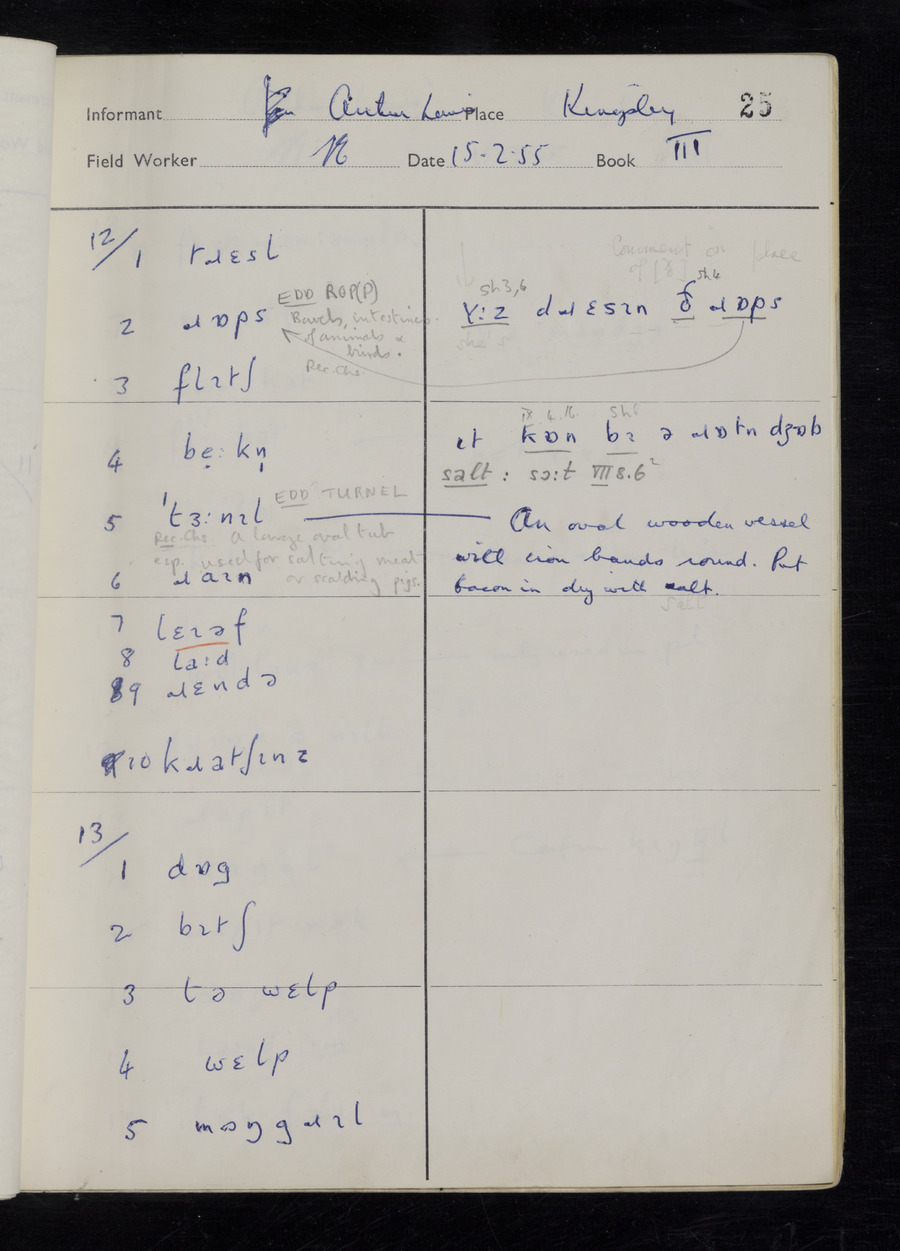 Informant Arthur Lewis Place Kingsley 25
Field Worker Date 15.2.55 Book III
12/1 tɹɛsl
Comment on place
of [ɣ]
2 ɹɒps
EDD ROP(P)
Bowels, intestines
of animals &
birds.
Rec. Chs.
sh3,6 sh6
ɣ:z dɹɛsɪn ɹɒps
3 flɪtʃ
4 be̞:kn̩
ɪt kɒn bɪ ə ɹɒtn dʒɒb
salt : sɔ:t VIII 8.6²
5 ˈtɜ:nɪl
EDD TURNEL
Rec. Chs A large oval tub
esp. used for salting meat
or scalding pigs.
An oval wooden vessel
with iron bands round. Put
bacon in dry with salt.
salt
6 ɹaɪn
7 lɛɪəf
8 la:d
9 ɹɛndə
10 kɹatʃɪnz
13/1 dɒg
2 bɪtʃ
3 tə wɛlp
4 wɛlp
5 mɔŋgɹɪl